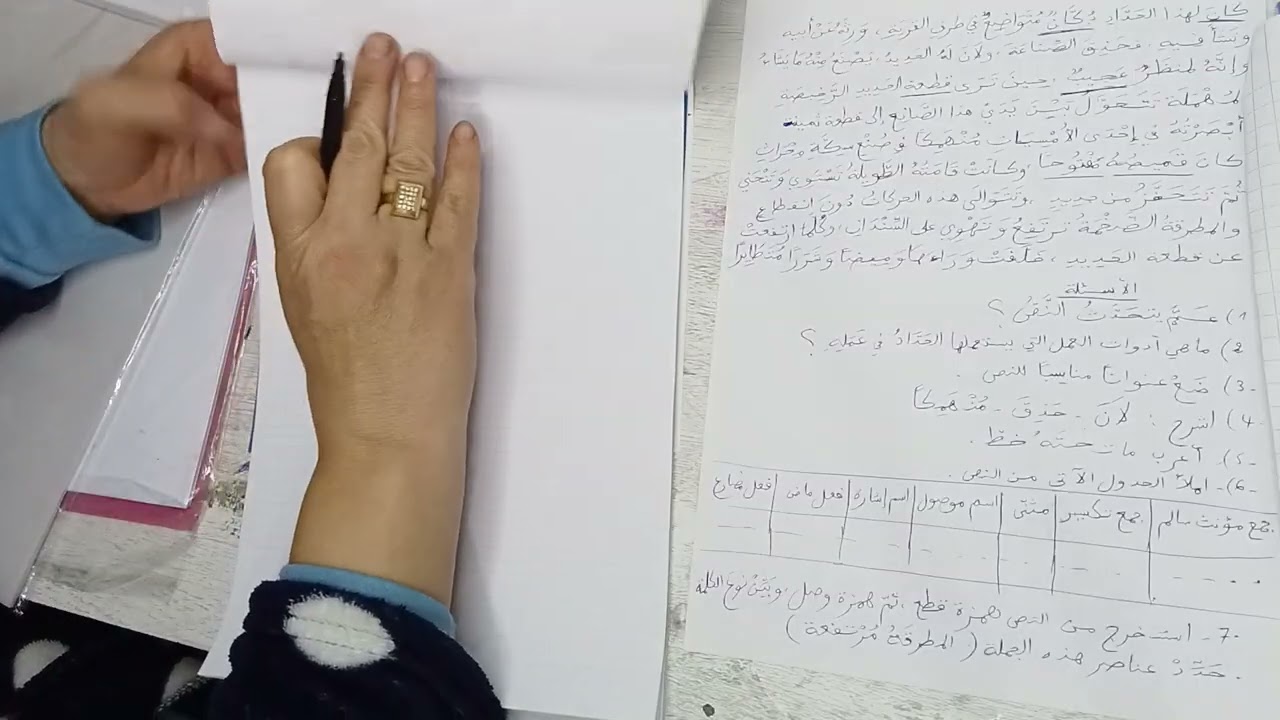 كَانَ لهذا الحَدَّادِ دُكَّانٌ مُتَوَاضِعٌ في طرف القرية، وَرِثَهُ عَنْ أبيه
وَنَشَأَ فِيهِ، فَحَذِقَ الصِّنَاعَةَ، وَلَانَ لَهُ الحديدُ، يَصْنَعُ مِنْهُ مَا يَشَاءُ
وَإِنَّهُ لَمَنْظَرٌ عَجِيبٌ، حِينَ تَرَى قِطْعَةَ الحَدِيدِ الرَّخِيصَةِ
المُهْمَلَةَ تَتَحَوَّلُ بَيْنَ يَدَيْ هذا الصَّانِعِ إلى قطعة ثمينة
أَبْصَرْتُهُ فِي إِحْدَى الأُمْسِيَاتِ مُنْهَمِكًا فِي صُنْعِ سِكَّةِ مِحْرَاثٍ
كَانَ قَمِيصُهُ مَفْتُوحًا وكَانَتْ قَامَتُهُ الطَّوِيلَةُ تَسْتَوِي وَتَنْحَنِي
ثُمَّ تَتَحَفَّزُ مِن جديدٍ، وتَتَوَالَى هذه الحركاتُ دُونَ انقطاع
والمطرقةُ الضَّخْمَةُ تَرْتَفِعُ وَتَهْوِي على السِّنْدَانِ، وكُلَّمَا ارتفعتْ
عن قطعة الحديد، خَلَّفَتْ وَرَاءَهَا وَمِيضًا وَشَرَرًا مُتَطَايِرًا
الأسئلة
1) عَمَّ يتحَدَّثُ النَّصُّ؟
2) ما هي أدوات العمل التي يستعملها الحَدَّادُ فِي عَمَلِهِ؟
3) ضَعْ عنوانًا مناسبًا للنص.
4) اشرح: لَانَ - حَذِقَ - مُنْهَمِكًا
5) أعرب ما تحته خطّ.
6) املأ الجدول الآتي من النص.
جمع مؤنث سالم | جمع تكسير | مثنى | اسم موصول | اسم إشارة | فعل ماض | فعل مضارع
7- استخرج من النص همزة قطع، ثمّ همزة وصل، وبَيِّنْ نوعَ الكلمة
حَدِّدْ عناصر هذه الجملة (المطرقةُ مُرْتَفِعة)